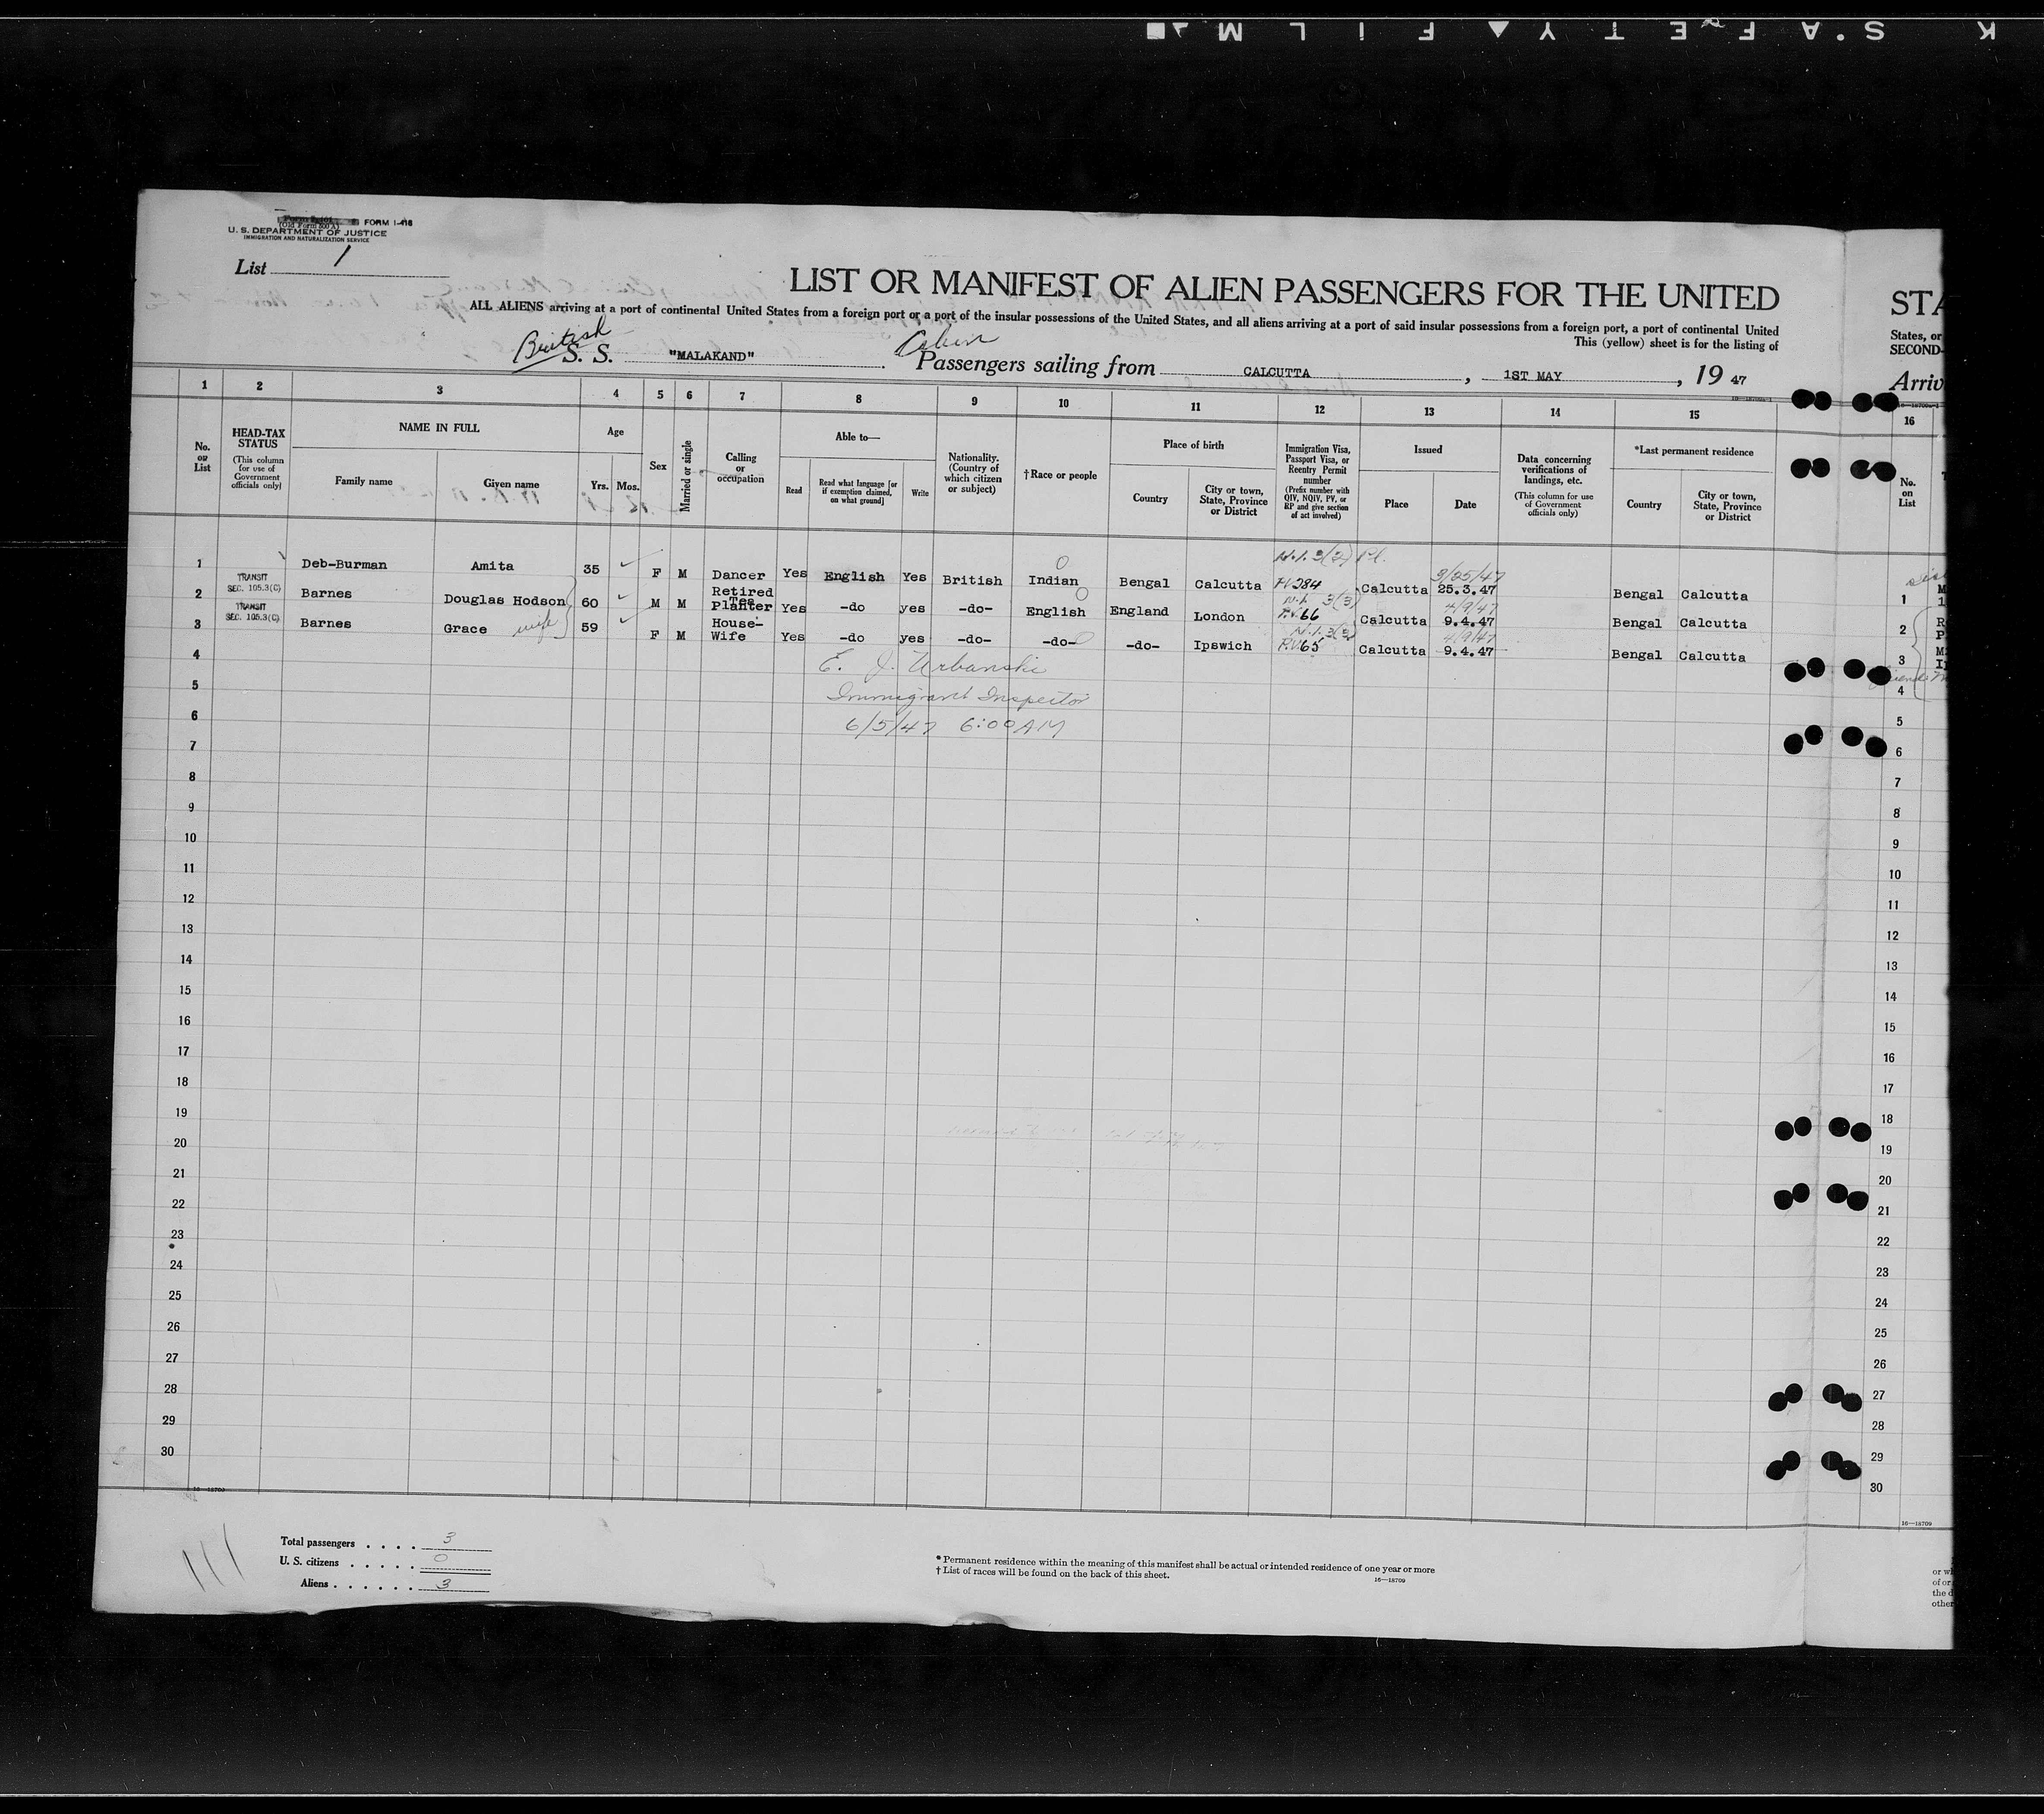 K S·AFETY▲FILM■
FORM I-418
(Old Form 500 A)
U. S. DEPARTMENT OF JUSTICE
IMMIGRATION AND NATURALIZATION SERVICE
List 1
LIST OR MANIFEST OF ALIEN PASSENGERS FOR THE UNITED STA
ALL ALIENS arriving at a port of continental United States from a foreign port or a port of the insular possessions of the United States, and all aliens arriving at a port of said insular possessions from a foreign port, a port of continental United States, or
This (yellow) sheet is for the listing of SECOND-
British Cabin
S. S. "MALAKAND" Passengers sailing from CALCUTTA, 1ST MAY, 19 47 Arriv
1 2 3 4 5 6 7 8 9 10 11 12 13 14 15 16
No. on List
HEAD-TAX STATUS
(This column for use of Government officials only)
NAME IN FULL
Family name Given name
Age
Yrs. Mos.
Sex
Married or single
Calling or occupation
Able to—
Read Read what language [or if exemption claimed, on what ground] Write
Nationality. (Country of which citizen or subject)
†Race or people
Place of birth
Country City or town, State, Province or District
Immigration Visa, Passport Visa, or Reentry Permit number
(Prefix number with QIV, NQIV, PV, or RP and give section of act involved)
Issued
Place Date
Data concerning verifications of landings, etc.
(This column for use of Government officials only)
*Last permanent residence
Country City or town, State, Province or District
No. on List
N.I. 3(2) Pl. 3/25/47
1 Deb-Burman Amita 35 F M Dancer Yes English Yes British Indian Bengal Calcutta PV284 Calcutta 25.3.47 Bengal Calcutta 1
TRANSIT SEC. 105.3(C)
N.I. 3(3) 4/9/47
2 Barnes Douglas Hodson 60 M M Retired Tea Planter Yes -do yes -do- English England London P.V.66 Calcutta 9.4.47 Bengal Calcutta 2
TRANSIT SEC. 105.3(C)
N.I. 3(3) 4/9/47
3 Barnes Grace wife 59 F M House-Wife Yes -do yes -do- -do- -do- Ipswich P.V.65 Calcutta 9.4.47 Bengal Calcutta 3
4 E. J. Urbanski 4
5 Immigrant Inspector 5
6 6/5/47 6:00 AM 6
7 7
8 8
9 9
10 10
11 11
12 12
13 13
14 14
15 15
16 16
17 17
18 18
19 19
20 20
21 21
22 22
23 23
24 24
25 25
26 26
27 27
28 28
29 29
30 30
16—18709 16—18709
Total passengers . . . . 3
U. S. citizens . . . . . 0
Aliens . . . . . . 3
* Permanent residence within the meaning of this manifest shall be actual or intended residence of one year or more
† List of races will be found on the back of this sheet.
16—18709
or wh
of or
the d
other